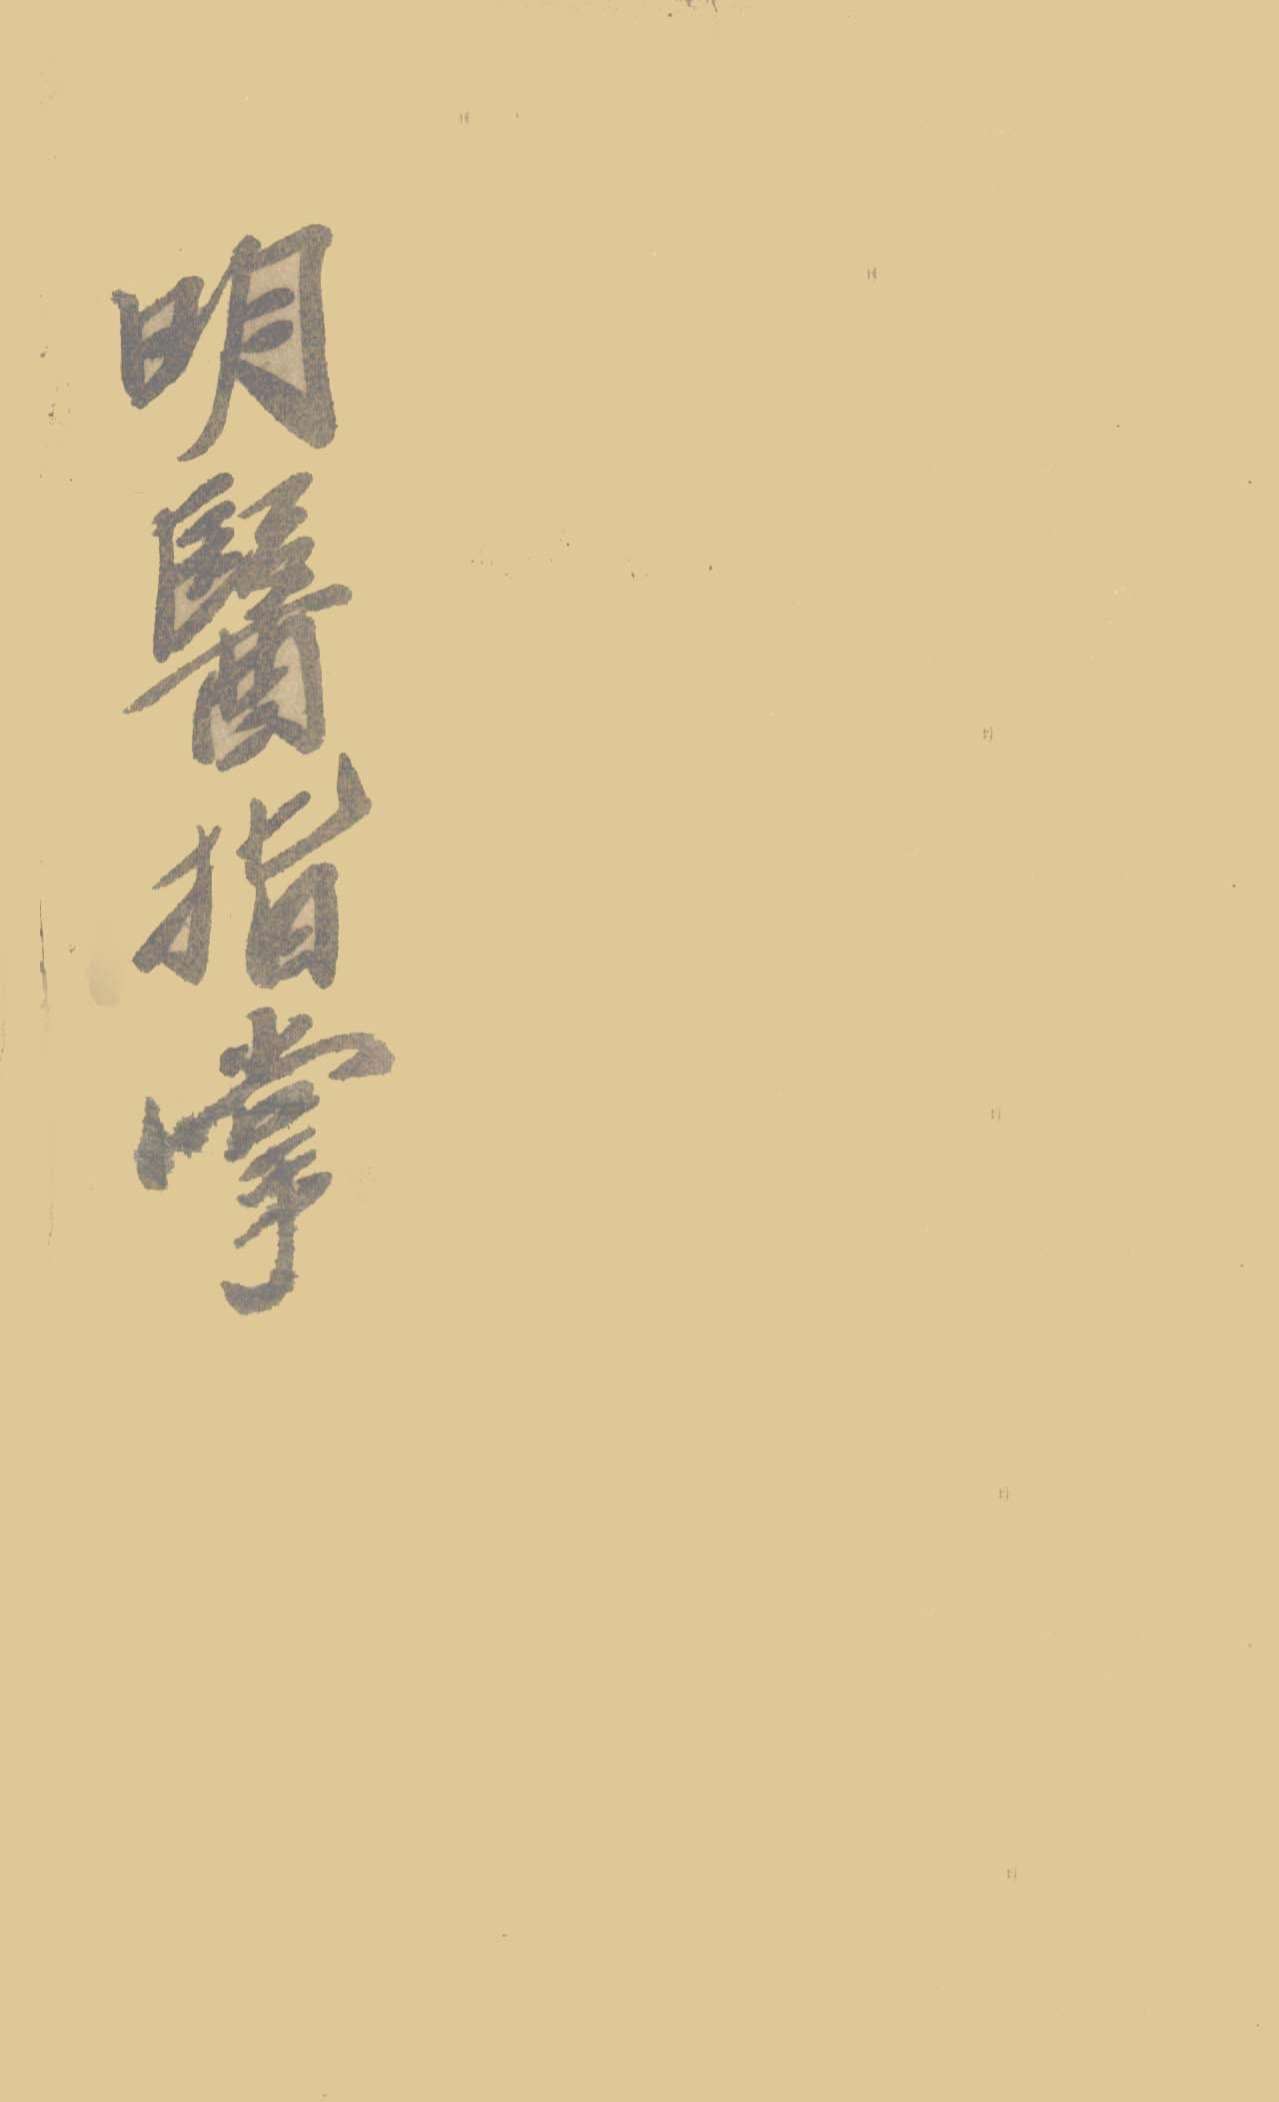 明醫指掌